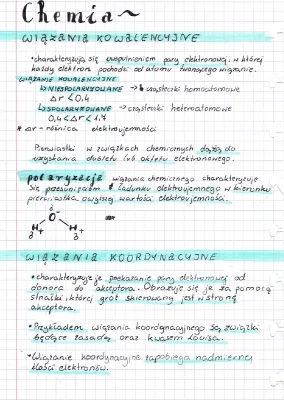 Chemia~
WIĄZANIA KOWALENCYJNE
•charakteryzują się uwspólnieniem pary elektronowej, w której
każdy elektron pochodzi od atomu tworzącego wiązanie.
WIĄZANIE KOWALENCYJNE
↳NIESPOLARYZOWANE → cząsteczki homoatomowe
Δr<0,4
↳SPOLARYZOWANE → cząsteczki heteroatomowe
0,4<Δr<1,7
* Δr - różnica elektroujemności
Pierwiastki w związkach chemicznych dążą do
uzyskania dubletu lub oktetu elektronowego.
polaryzacja wiązania chemicznego charakteryzuje
się przesunięciem ładunku elektroujemnego w kierunku
pierwiastka o wyższej wartości elektroujemności.
δ-
O
H H
δ+ δ+
WIĄZANIA KOORDYNACYJNE
•charakteryzuje przekazanie pary elektronowej od
donora do akceptora. Obrazuje się je za pomocą
strzałki, której grot skierowany jest w stronę
akceptora.
•Przykładem wiązania koordynacyjnego są związki
będące zasadą oraz kwasem Louisa.
•Wiązanie koordynacyjne zapobiega nadmiernej
ilości elektronów.